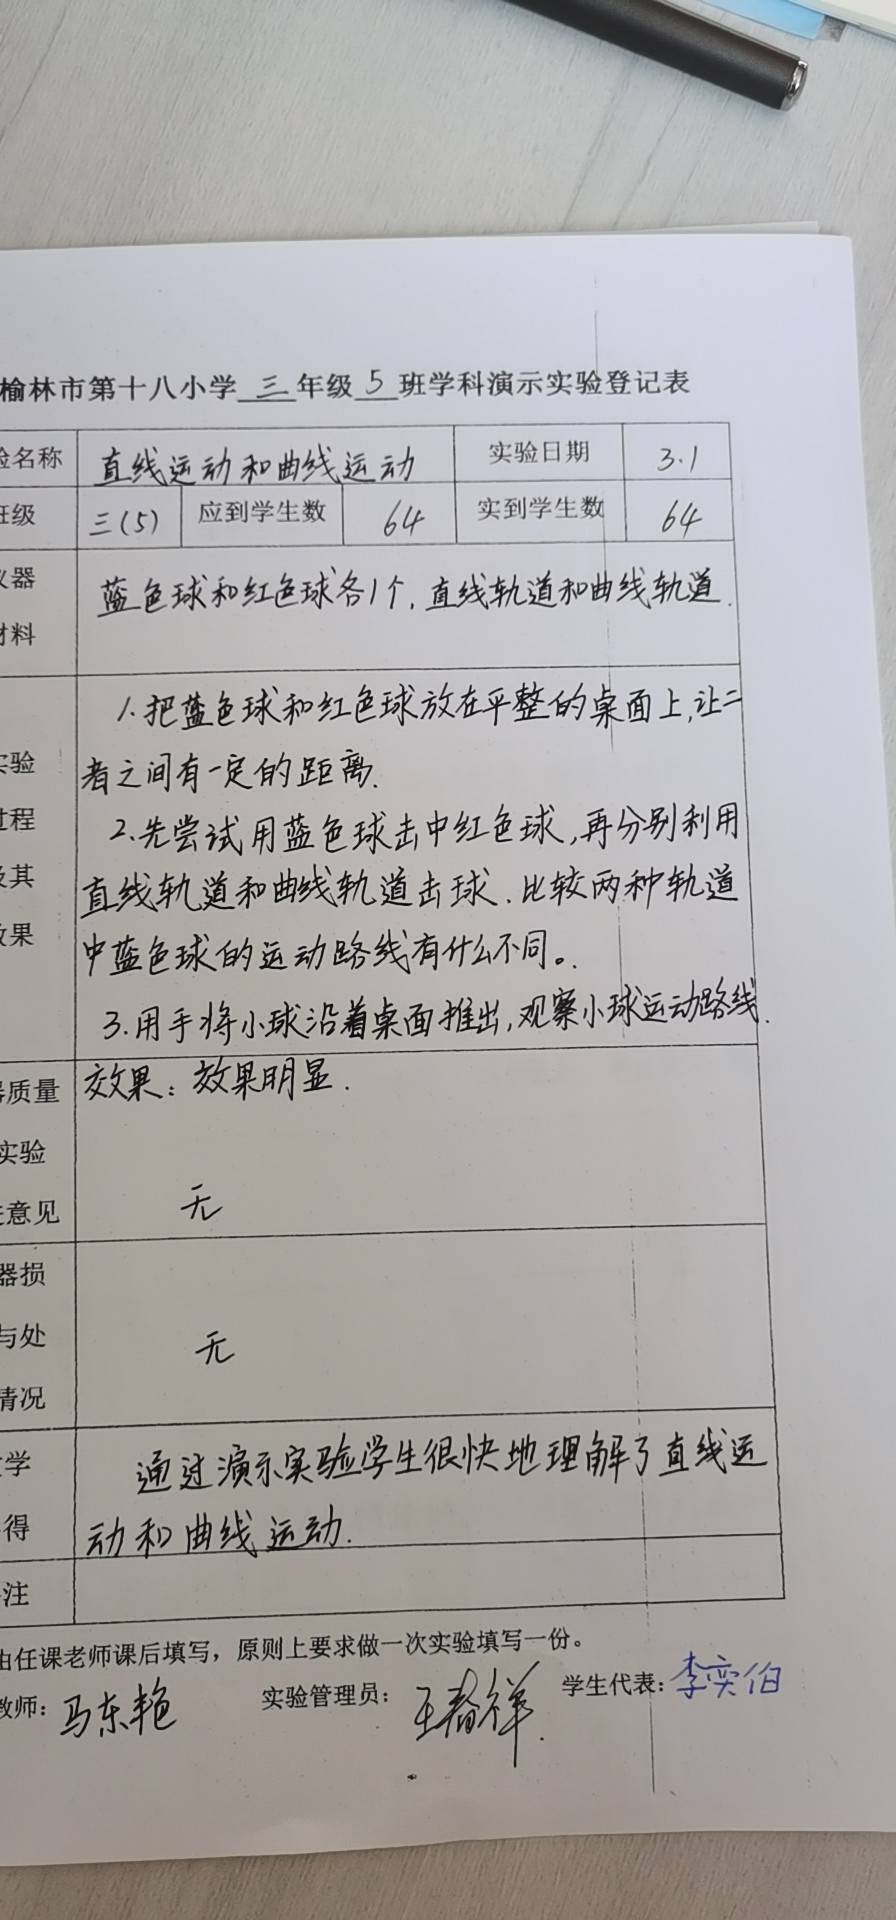 榆林市第十八小学 三 年级 5 班学科演示实验登记表
验名称 直线运动和曲线运动 实验日期 3.1
班级 三(5) 应到学生数 64 实到学生数 64
仪器 蓝色球和红色球各1个,直线轨道和曲线轨道.
材料
1.把蓝色球和红色球放在平整的桌面上,让二
实验 者之间有一定的距离.
过程 2.先尝试用蓝色球击中红色球,再分别利用
及其 直线轨道和曲线轨道击球.比较两种轨道
效果 中蓝色球的运动路线有什么不同。.
3.用手将小球沿着桌面推出,观察小球运动路线.
器质量 效果:效果明显.
实验
进意见 无
器损
与处 无
情况
学 通过演示实验学生很快地理解了直线运
得 动和曲线运动.
注
由任课老师课后填写,原则上要求做一次实验填写一份。
教师:马东艳 实验管理员: 学生代表:李奕伯